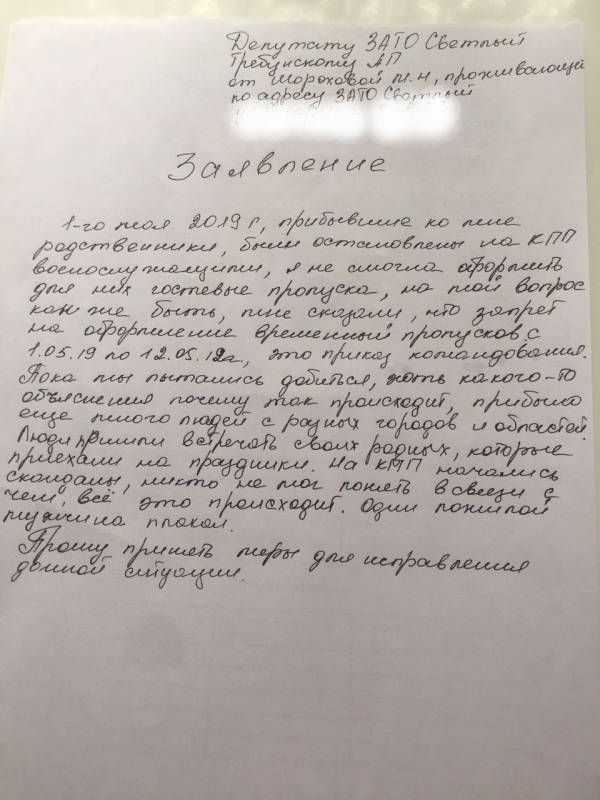 Депутату ЗАТО Светлый
Требунскому АП
от Шороховой М.Н, проживающей
по адресу ЗАТО Светлый
Заявление
1-го мая 2019 г, прибывшие ко мне
родственники, были остановлены на КПП
военослужащими, я не смогла оформить
для них гостевые пропуска, на мой вопрос
как же быть, мне сказали, что запрет
на оформление временный пропусков, с
1.05.19 по 12.05.19г, это приказ командования.
Пока мы пытались добиться, хоть какого-то
объяснения почему так происходит, прибыло
еще много людей с разных городов и областей.
Люди пришли встречать своих родных, которые
приехали на праздники. На КПП начались
скандалы, никто не мог понять в свези с
чем, всё это происходит. Один пожилой
мужчина плакал.
Прошу принеть меры для исправления
данной ситуации.